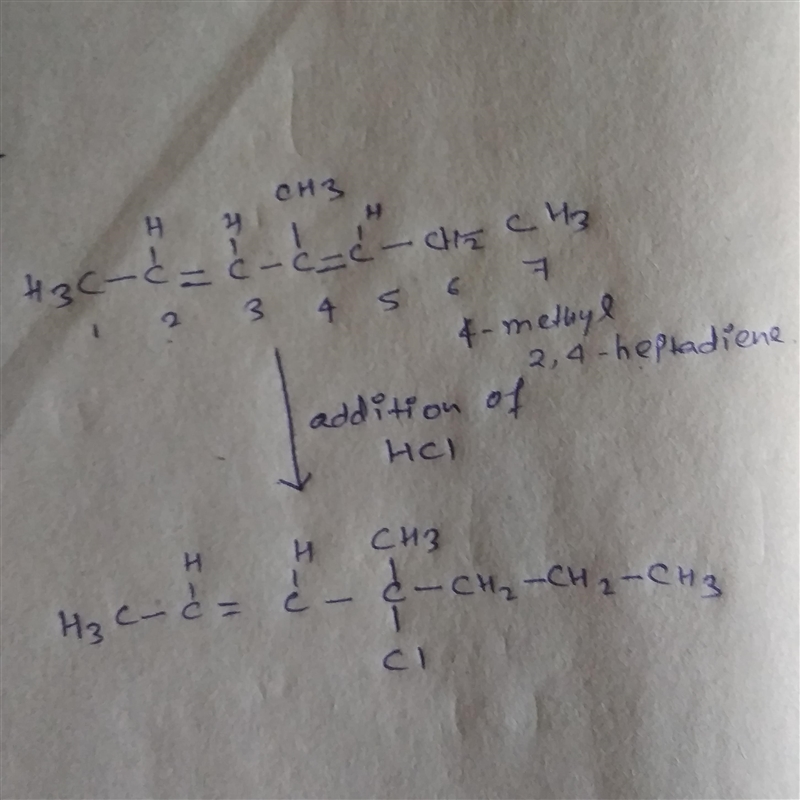 CH3
H H H
H3C-C=C-C=C-CH2 CH3
1 2 3 4 5 6 7
4-methyl
2,4-heptadiene.
addition of
HCl
H H CH3
H3C-C=C-C-CH2-CH2-CH3
Cl